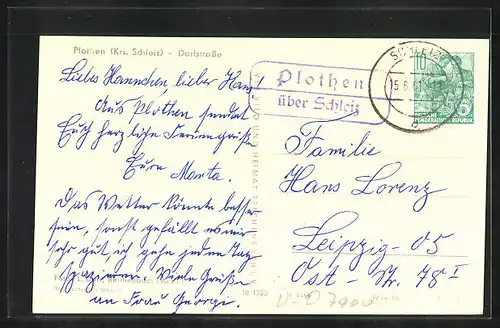 Plothen (Krs. Schleiz) - Dorfstraße
Liebes Hannchen, lieber Hans
Aus Plothen sendet
Euch herzliche Feriengrüße
Eure Marta.
Das Wetter könnte besser
sein, sonst gefällt es mir
sehr gut, ich gehe jeden Tag
spazieren. Viele Grüße
an Frau Georgi.
Plothen
über Schleiz
SCHLEIZ
15.6.
10
DEMOKRATISCHE REPUBLIK
BILD UND HEIMAT
Familie
Hans Lorenz
Leipzig - O5
Ost - Str. 78 I